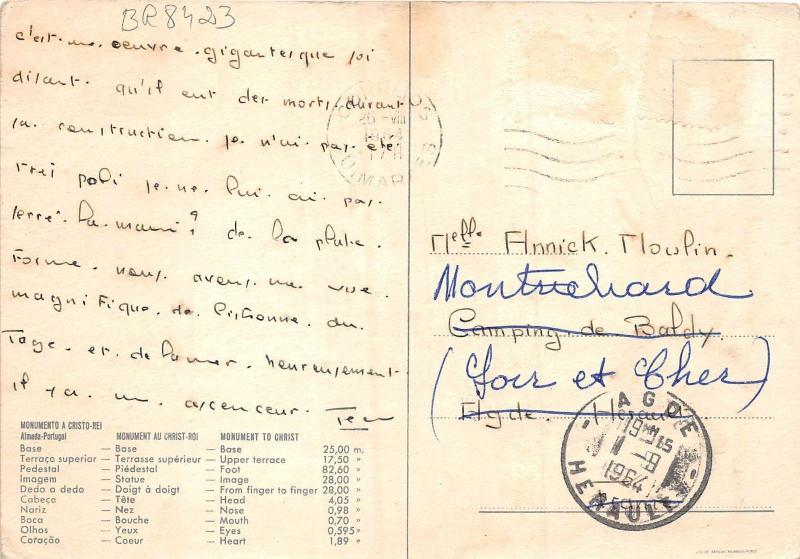 BR8423
c'est une oeuvre gigantesque soi
disant qu'il eut des morts durant
sa construction. je n'ai pas été
trei poli je ne lui ai pas
serré la main ! de la plate
forme nous avons une vue
magnifique de Lisbonne du
Tage et de la mer. heureusement
il y a un ascenceur.
Melle Annick Moulin.
Montrichard
Camping de Baldy
(Loir et Cher)
Agde. Hérault
AGDE
19H15
1964
HERAULT
MONUMENTO A CRISTO-REI
Almada-Portugal MONUMENT AU CHRIST-ROI MONUMENT TO CHRIST
Base — Base — Base 25,00 m.
Terraço superior — Terrasse supérieur — Upper terrace 17,50 »
Pedestal — Piédestal — Foot 82,60 »
Imagem — Statue — Image 28,00 »
Dedo a dedo — Doigt à doigt — From finger to finger 28,00 »
Cabeça — Tête — Head 4,05 »
Nariz — Nez — Nose 0,98 »
Boca — Bouche — Mouth 0,70 »
Olhos — Yeux — Eyes 0,595 »
Coração — Coeur — Heart 1,89 »